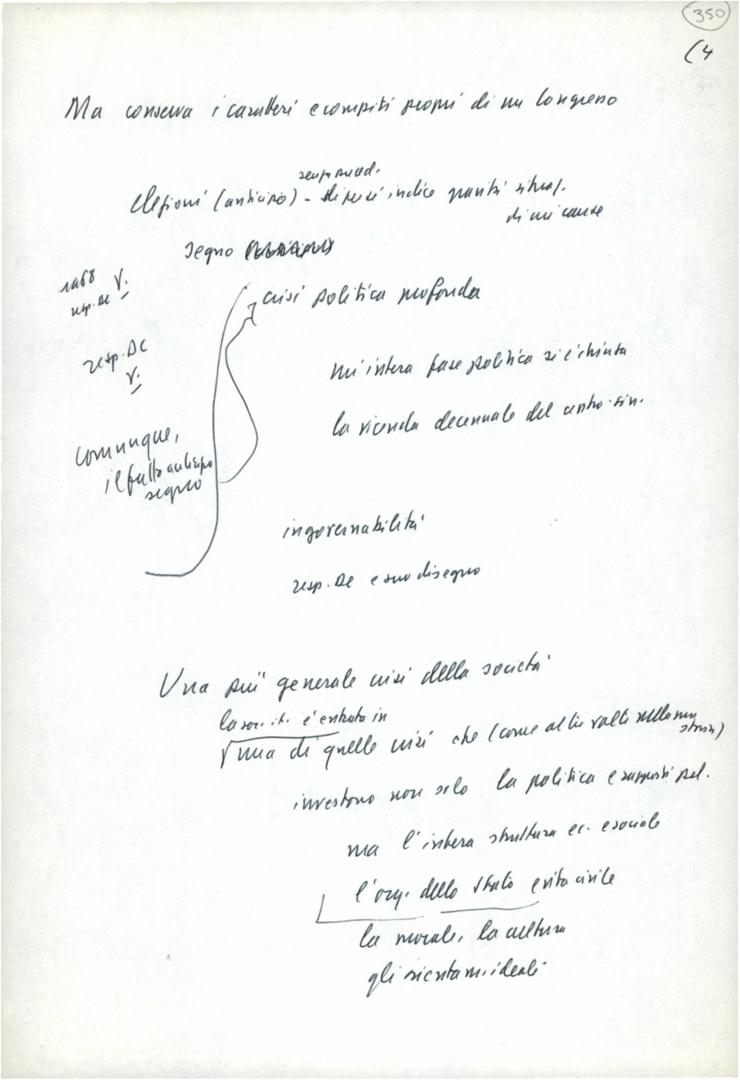 350
(4
Ma conserva i caratteri e compiti propri di un Congresso
Elezioni (anticipo) - indice gravità situaz.
di cui cause
segno
1968
resp. DC V.
crisi politica profonda
resp. DC
V.
un'intera fase politica si è chiusa
la vicenda decennale del centro-sin.
comunque,
il fatto anticipo
segno
ingovernabilità
resp. DC e suo disegno
Una più generale crisi della società
la soc. it. è entrata in
una di quelle crisi che (come altre volte nella sua
storia)
investono non solo la politica e rapporti pol.
ma l'intera struttura ec. e sociale
l'org. dello Stato e vita civile
la morale, la cultura
gli orientam. ideali